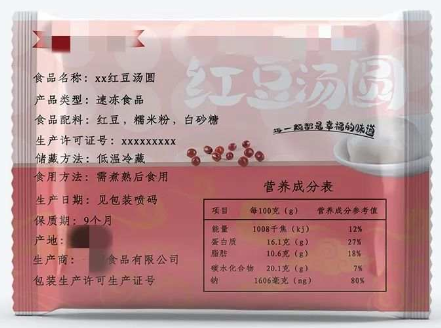 红豆汤圆
每一颗都是幸福的味道
食品名称：xx红豆汤圆
产品类型：速冻食品
食品配料：红豆，糯米粉，白砂糖
生产许可证号：xxxxxxxxx
储藏方法：低温冷藏
食用方法：需煮熟后食用
生产日期：见包装喷码
保质期：9个月
产地：
生产商： 食品有限公司
包装生产许可生产证号
营养成分表
项目 每100克（g） 营养成分参考值
能量 1008千焦（kj） 12%
蛋白质 16.1克（g） 27%
脂肪 10.6克（g） 18%
碳水化合物 20.1克（g） 7%
钠 1606毫克（ng） 80%